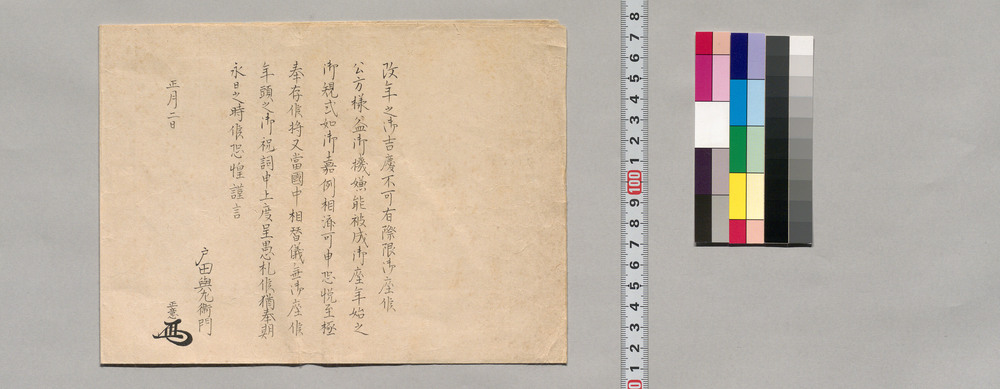 改年之御吉慶不可有際限御座候
公方様益御機嫌能被成御座年始之
御規式如御嘉例相済可申恐悦至極
奉存候将又當國中相替儀無御座候
年頭之御祝詞申上度呈愚札候猶奉期
永日之時候恐惶謹言
正月二日
戸田與左衛門
8
7
6
5
4
3
2
1
100
9
8
7
6
5
4
3
2
1
0